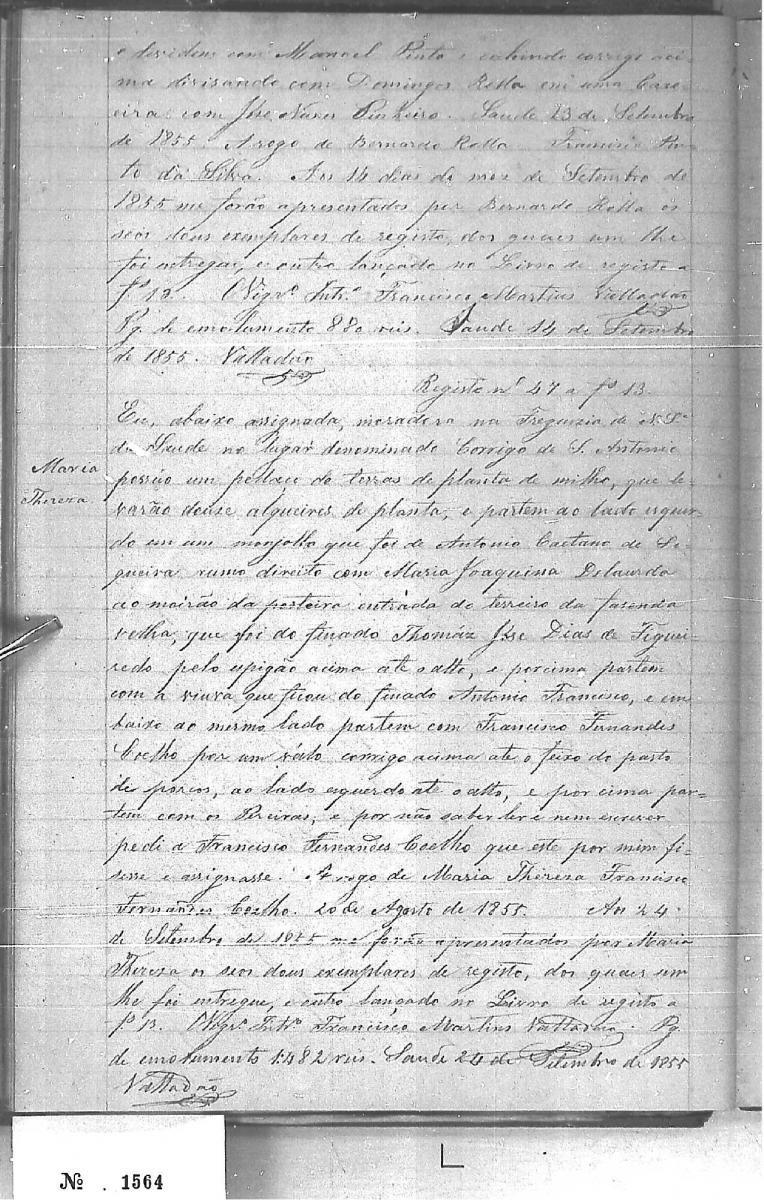 e devidem com Manoel Pinto e cahindo corrigo aci-
ma divisando com Domingos Rolla em uma Caxo-
eira com Jose Nunes Pinheiro. Saude 13 de Setembro
de 1855. A rogo de Bernardo Rolla Francisco Pin-
to da Silva. Aos 14 dias do mez de Setembro de
1855 me forão apresentados por Bernardo Rolla os
seos dous exemplares de registo, dos quaes um lhe
foi entregue, e outro lançado no Livro de registo a
fs 12. O Vigrº Intrº Francisco Martins Valladão
Pg. de emolumento 880 reis. Saude 14 de Setembro
de 1855. Valladão
Registo nº 47 a fs 13.
Eu, abaixo assignada, moradora na Freguezia de N. Sª
da Saude no lugar denominado Corrigo de S. Antonio
Maria
Thereza
possúo um pedaço de terras de planta de milho, que le-
varão douse alqueires de planta, e partem ao lado esquer-
do em um monjollo que foi de Antonio Caetano de Si-
gueira rumo direito com Maria Joaquina Delaurda
ao moirão da porteira entrada do terreiro da fasenda
velha, que foi do finado Thomáz Jose Dias de Figuei-
redo pelo espigão acima até o alto, e por cima partem
com a viuva que ficou do finado Antonio Francisco, e em
baixo ao mesmo lado partem com Francisco Fernandes
Coelho por um válo corrigo acima até o feixo do pasto
de porcos, ao lado esquerdo até o alto, e por cima par-
tem com os Pereiras, e por não saber ler e nem escrever
pedi a Francisco Fernandes Coelho que este por mim fi-
sesse e assignasse. A rogo de Maria Thereza Francisco
Fernandes Coelho. 20 de Agosto de 1855. Aos 24
de Setembro de 1855 me forão apresentados por Maria
Thereza os seos dous exemplares de registo, dos quaes um
lhe foi entregue, e outro lançado no Livro de registo a
fs 13. O Vigrº Intrº Francisco Martins Valladão. Pg.
de emolumento 1:482 reis. Saude 24 de Setembro de 1855
Valladão
Nº . 1564